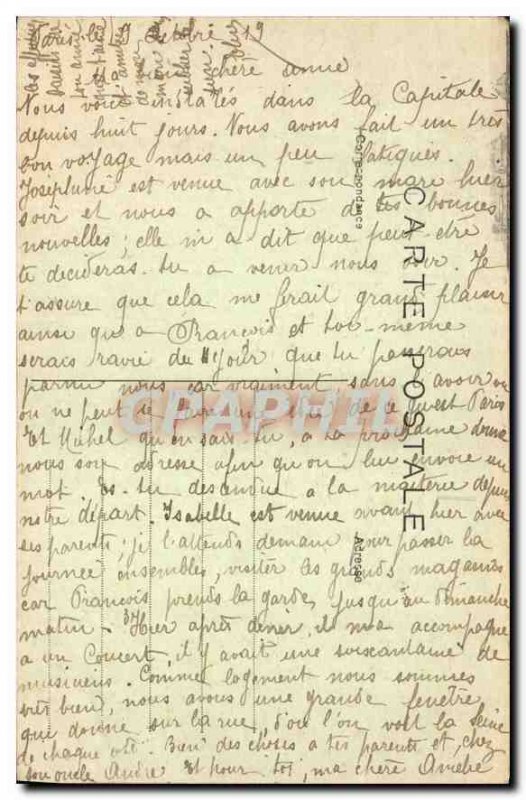 Paris, le 9 Octobre 19
Ma chère
Nous voici installés dans la Capitale
depuis huit jours. Nous avons fait un très
bon voyage mais un peu fatigués.
Josephine est venue avec son mari hier
soir et nous a apporté de tes bonnes
nouvelles ; elle m'a dit que peut-être
te decideras-tu a venir nous voir. Je
t'assure que cela me ferait grand plaisir
ainsi qu'a François et toi-même
serais ravie du séjour que tu passerais
parmi nous car vraiment sans avoir vu
on ne peut se faire une idée de ce qu'est Paris
Et Michel qu'en sais-tu, a la prochaine donne
nous son adresse afin qu'on lui envoie un
mot. Es-tu descendue a la depuis
notre départ. Isabelle est venue avant hier avec
ses parents ; je l'attends demain pour passer la
journée ensembles, visiter les grands magasins
car François prends la garde jusqu'au dimanche
matin. Hier après diner, il m'a accompagné
a un Concert, il y avait une soixantaine de
musiciens. Comme logement nous sommes
très bien, nous avons une grande fenêtre
qui donne sur la rue, d'ou l'on voit la Seine
de chaque côté. Bien des choses a tes parents et, chez
son oncle André. Et pour toi, ma chère Amelie
les
son amie
CARTE POSTALE
Correspondance
Adresse
CPAPHIL